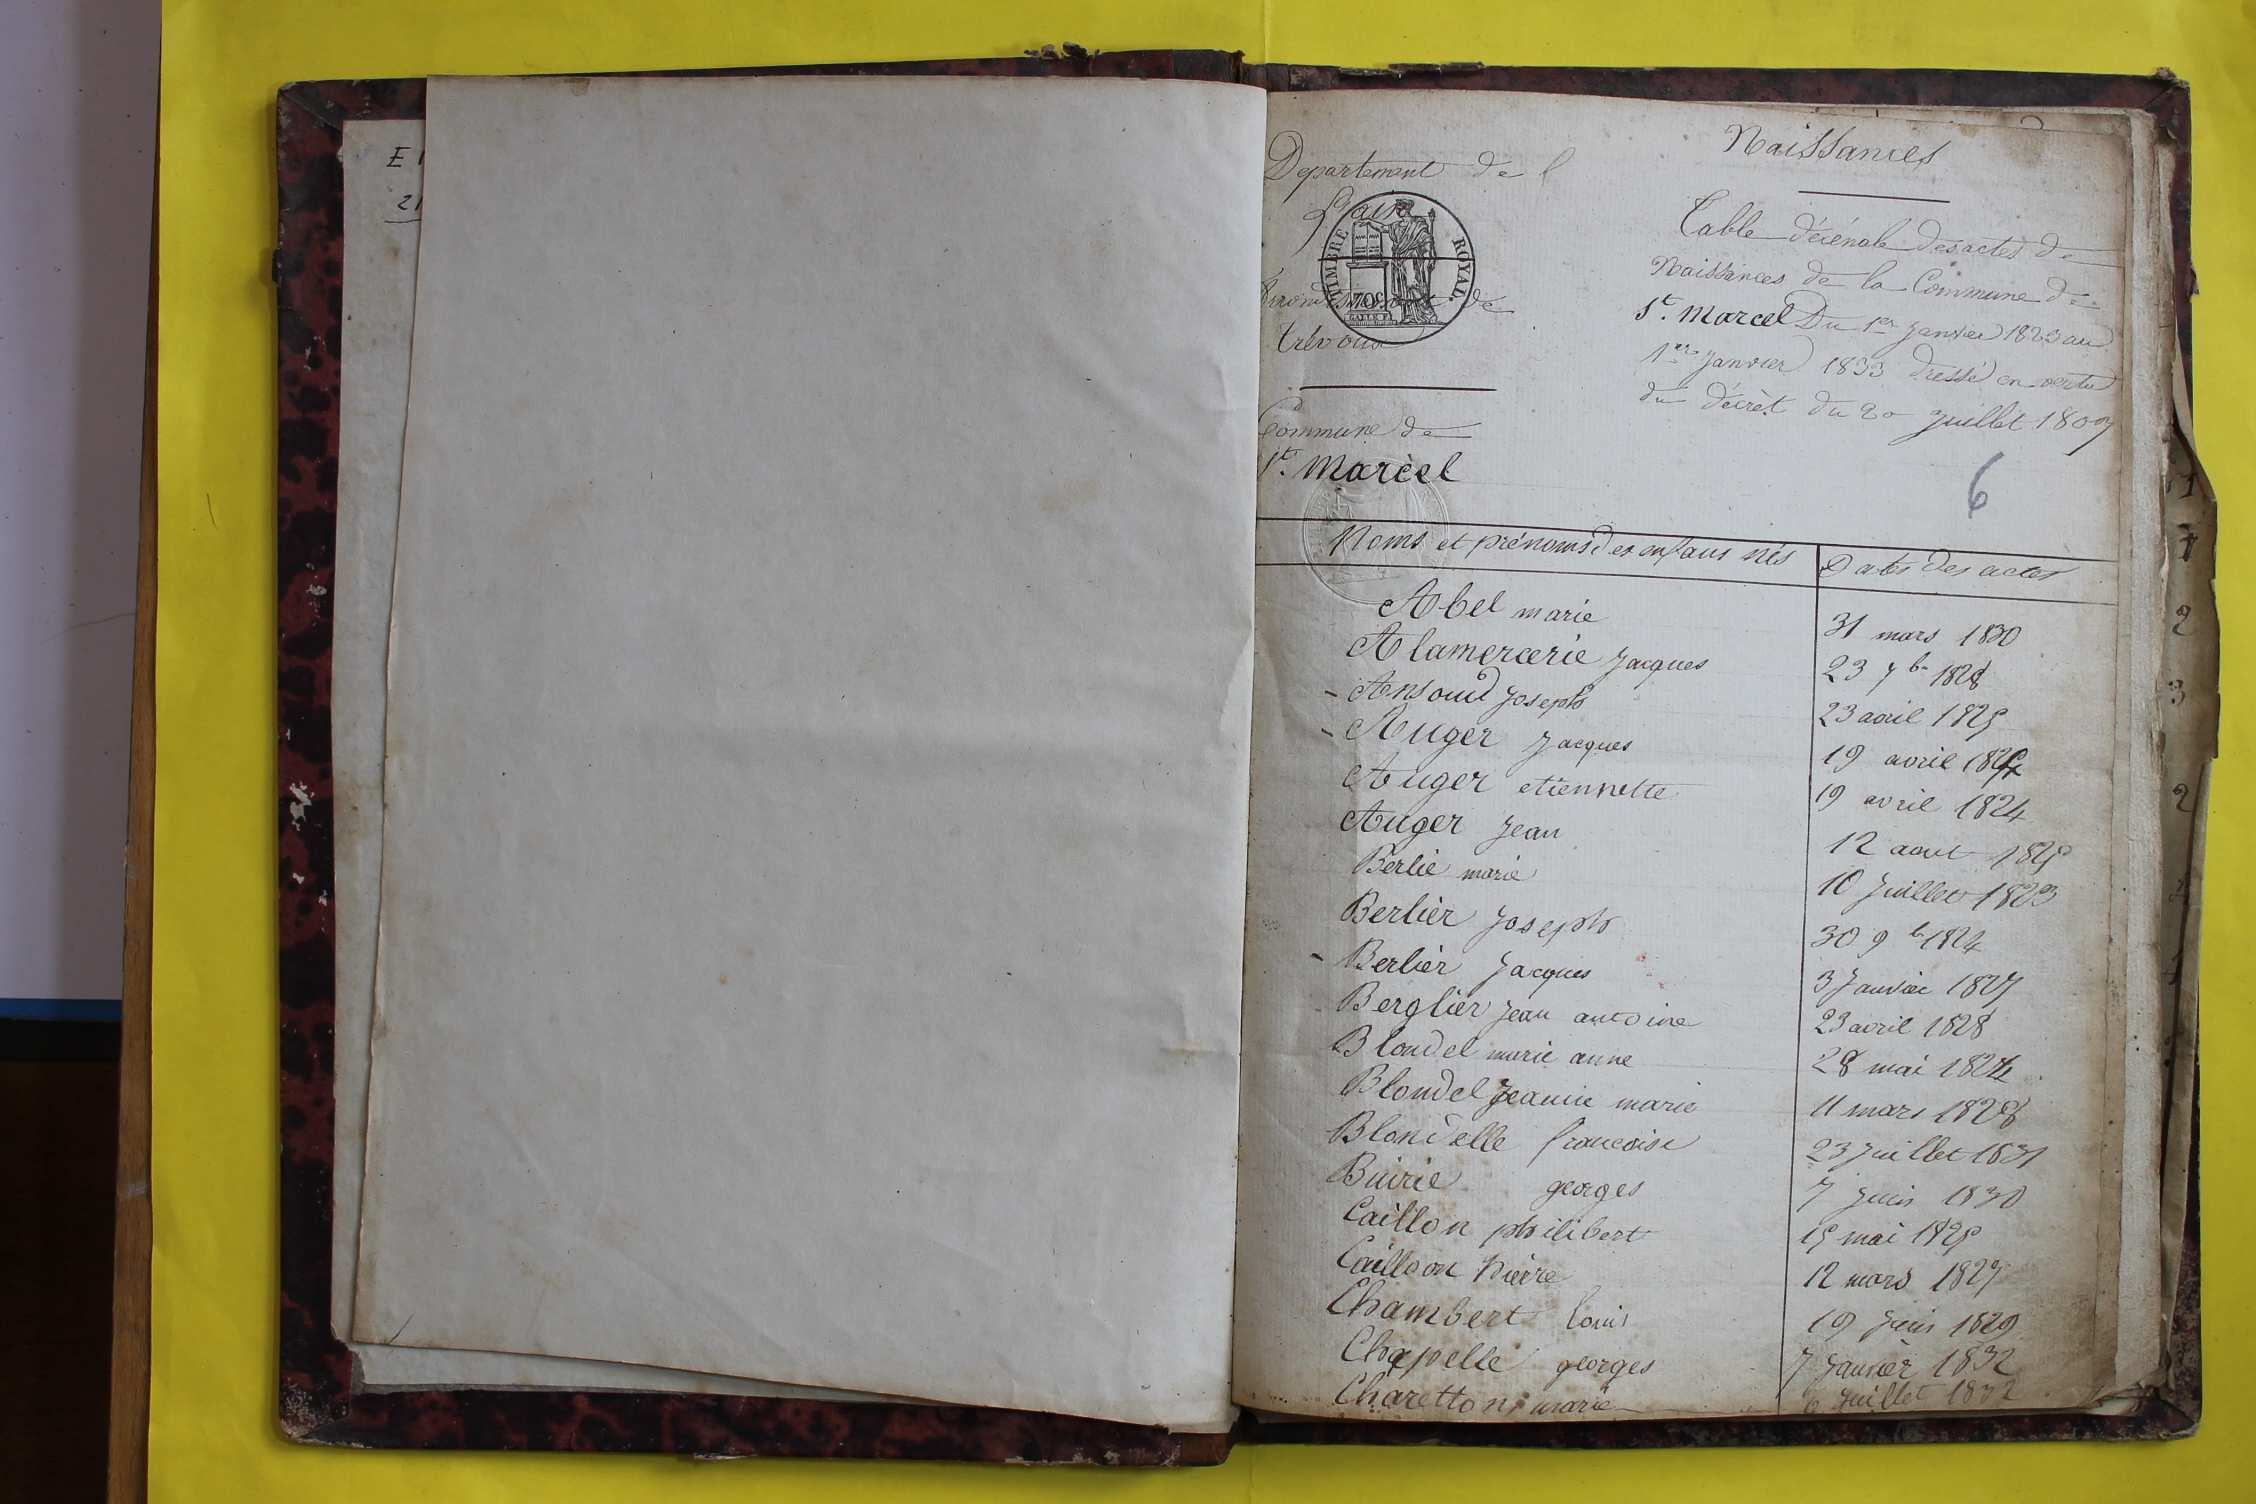 E
21
Departement de l
l'ain
TIMBRE ROYAL
70c
Arrondissement de
trévoux
Commune de
St. Marcel
Naissances
Table décénale des actes de
Naissances de la Commune de
St. Marcel Du 1er janvier 1823 au
1er janvier 1833 dressé en vertu
du décrèt du 20 juillet 1807
6
Noms et prénoms des enfans nés Dates des actes
Abel marie 31 mars 1830
Alamercerie jacques 23 7b. 1828
- Ansoud joseph 23 avril 1825
- Auger jacques 19 avril 1824
Auger etiennette 19 avril 1824
Auger jean 12 aout 1825
Berlié marie 10 juillet 1823
Berliér joseph 30 9b 1824
- Berliér jacques 3 janvier 1827
Berglier jean antoine 23 avril 1828
Blondel marie anne 28 mai 1824
Blondel jeanne marie 11 mars 1828
Blondelle francoise 23 juillet 1831
Buirie georges 7 juin 1830
Caillon philibert 15 mai 1825
Cailloon Pierre 12 mars 1827
Chambert louis 19 juin 1829
Chapelle georges 7 janvier 1832
Charetton marie 6 juillet 1832